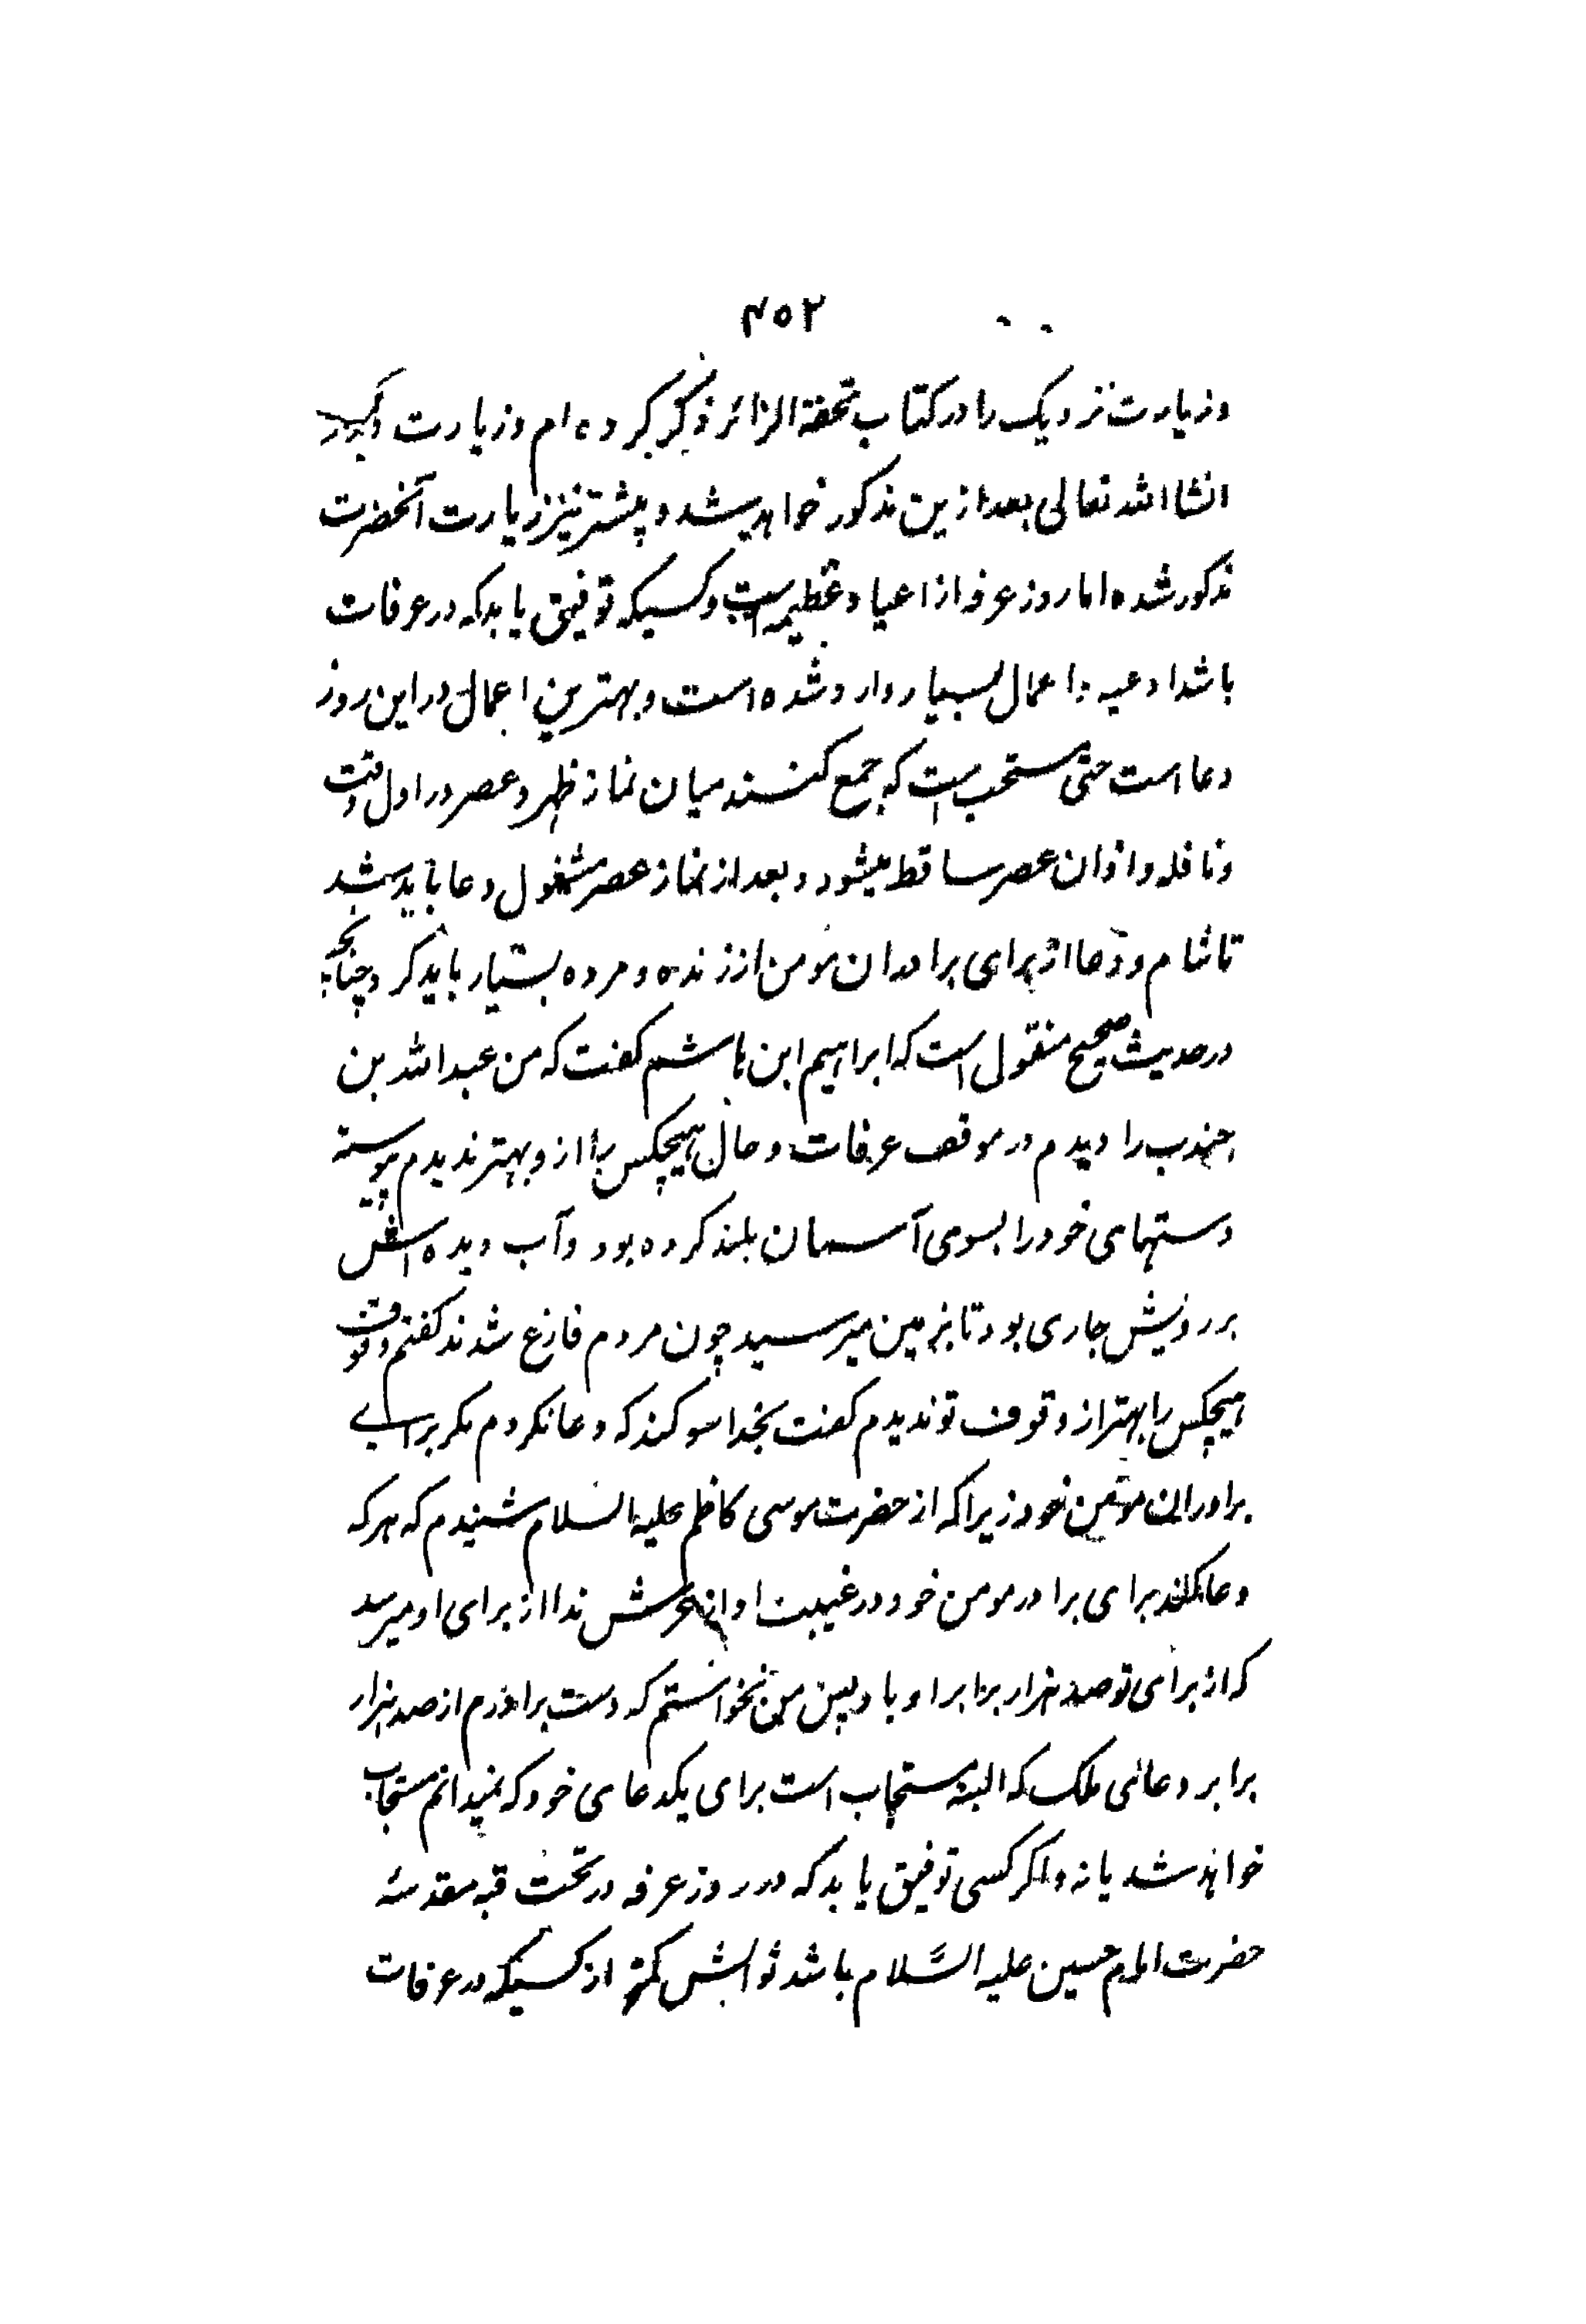 ۴۵۲
وزیارت نزدیک را در کتاب تحفة الزائر ذکر کرده ام وزیارت دیگر
انشا الله تعالی بعد ازین مذکور خواهد شد و پیشتر نیز زیارت آنحضرت
مذکور شده اما روز عرفه از اعیاد عظیمه است و کسیکه توفیق یابد که در عرفات
باشد ادعیه و اعمال بسیار وارد شده است و بهترین اعمال در این روز
دعا است حتی مستحب است که جمع کنند میان نماز ظهر و عصر در اول وقت
و نافله و اذان عصر ساقط میشود و بعد از نماز عصر مشغول دعا باید شد
تا شام و دعا از برای برادران مومن از زنده و مرده بسیار باید کرد چنانچه
در حدیث صحیح منقول است که ابراهیم ابن هاشم کفت که من عبد الله بن
جندب را دیدم در موقف عرفات و حال هیچکس را از و بهتر ندیدم پیوسته
دستهای خود را بسوی آسمان بلند کرده بود و آب دیده اش
بر رویش جاری بود تا بزمین میرسید چون مردم فارغ شدند کفتم وقوف
هیچکس را بهتر از وقوف تو ندیدم کفت بخدا سوکند که دعا نکردم مکر برای
برادران مومن خود زیرا که از حضرت موسی کاظم علیه السلام شنیدم که هر که
دعا کند برای برادر مومن خود در غیبت او از عرش ندا از برای او میرسد
که از برای تو صد هزار برابر او باد پس من نخواستم که دست بردارم از صد هزار
برابر دعای ملک که البته مستجاب است برای یکدعا ی خود که نمیدانم مستجاب
خواهد شد یا نه و اکر کسی توفیق یابد که در روز عرفه در تحت قبه مقدسه
حضرت امام حسین علیه السَّلام باشد ثوابش کمتر از کسیکه در عرفات